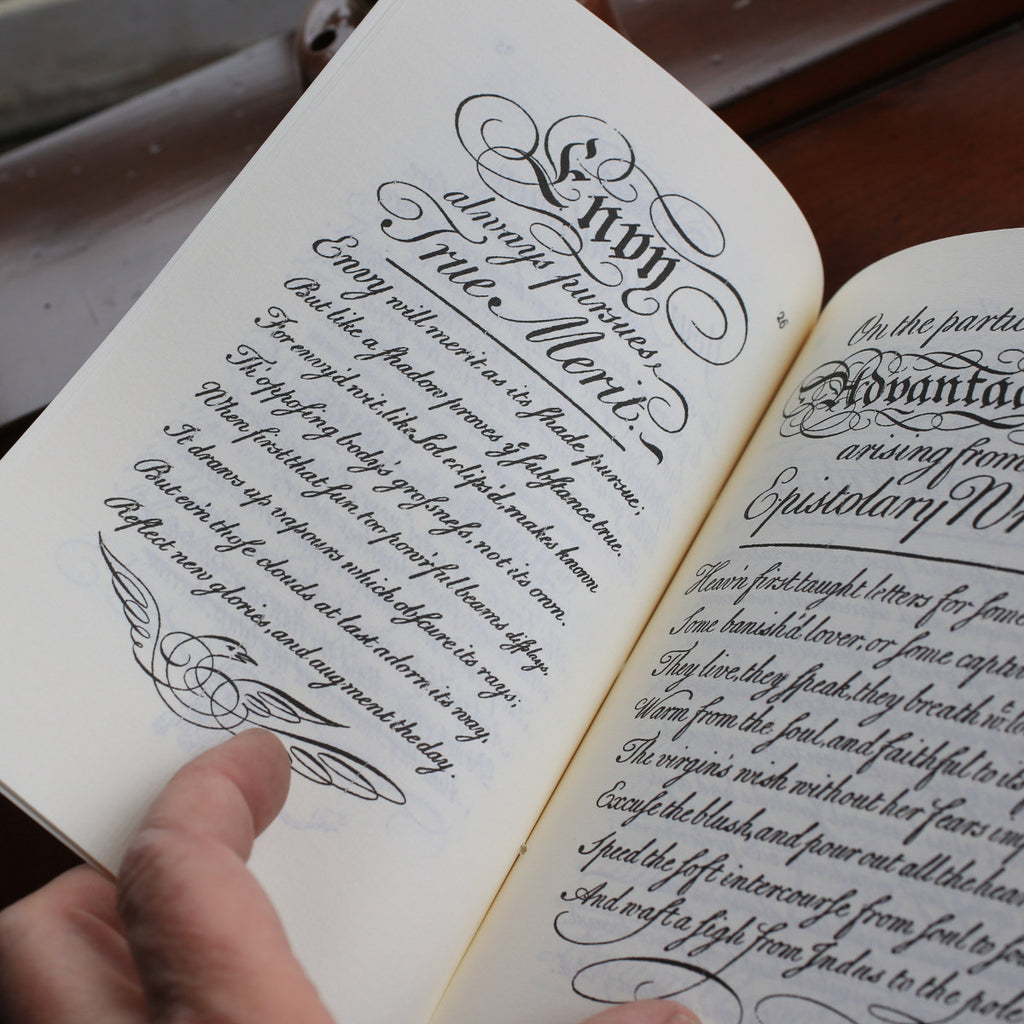 Envy
always pursues
True Merit.
26
Envy will merit as its ſhade purſue;
But like a ſhadow proves yͤ ſubſtance true.
For envy'd wit, like Sol eclips'd, makes known
Th'oppoſing body's groſsneſs, not its own.
When first that ſun too pow'rful beams diſplays,
It draws up vapours which obſcure its rays;
But ev'n thoſe clouds at last adorn its way,
Reflect new glories, and augment the day.
On the
Advantag
arising from
Epistolary
Heav'n first taught letters for ſome
Some baniſh'd lover, or ſome
They live, they ſpeak, they breath
Warm from the ſoul, and faithful to its
The virgin's wiſh without her fears
Excuſe the bluſh, and pour out all the
Speed the ſoft intercourſe from ſoul to
And waft a ſigh from Indus to the pole